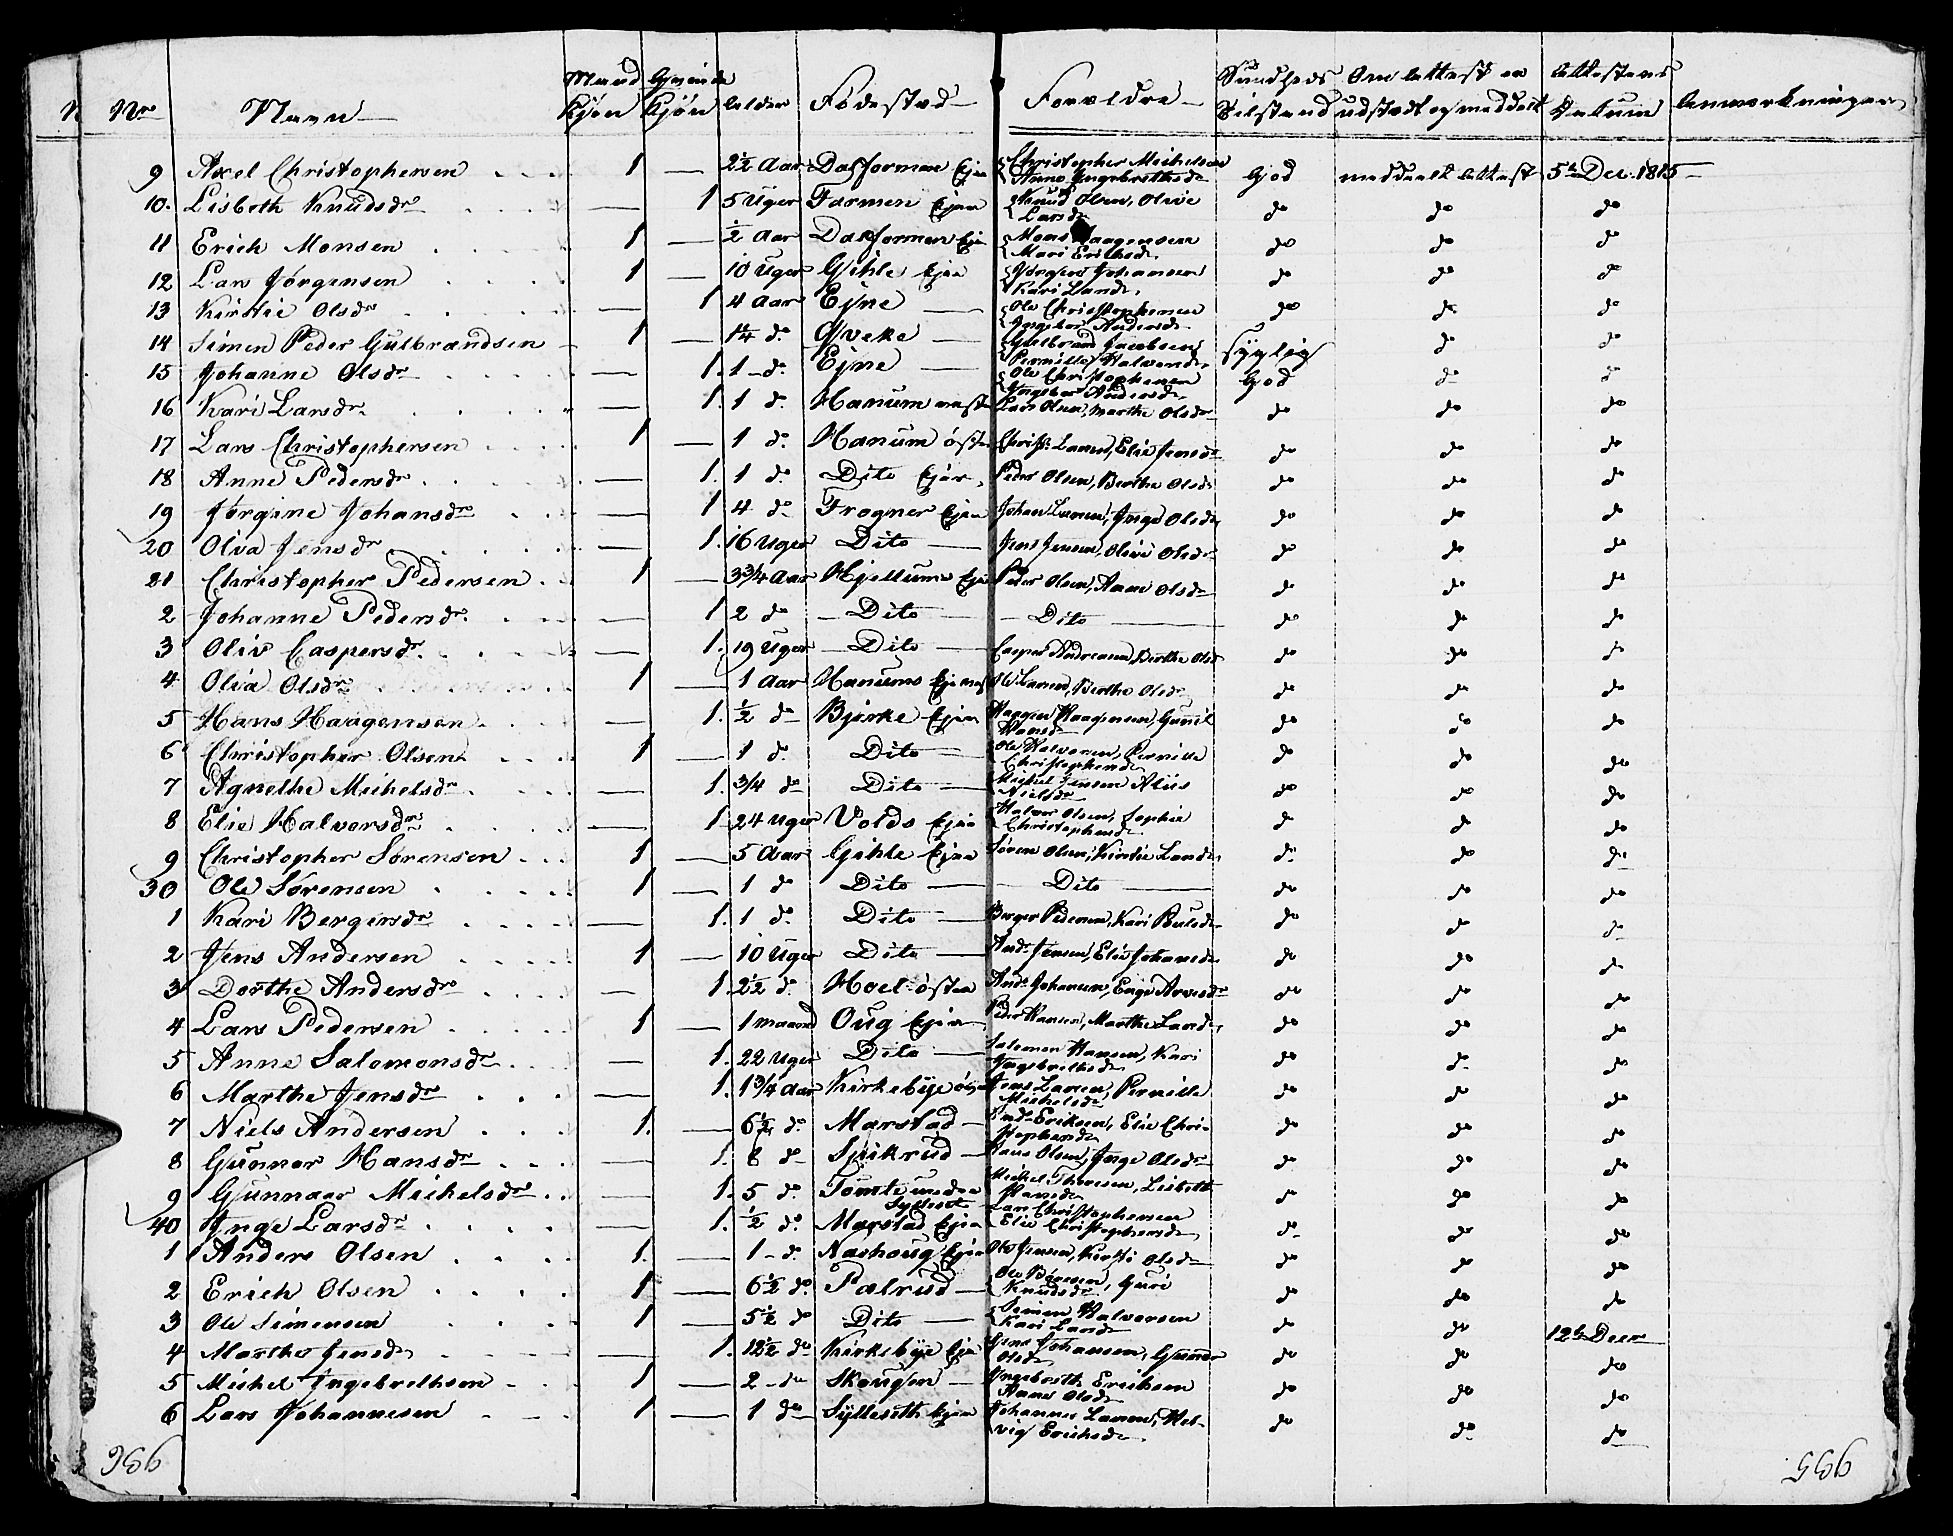 Nr Navn Mand Kjøn Qvinde Kjøn Alder Fødested Forældre Sundheds Tilstand Om Attest er udstædt og meddelt Attestens Datum Anmærkninger
9 Axel Christophersen 1 — 2½ Aar Dalformen Ejer Christopher Michelsen Anne Ingebrethsdr God meddeelt Attest 5te Dec. 1815
10. Lisbeth Knudsdr — 1 5 Uger Formen Ejer Knud Olsen, Olive Larsdr do do do
11 Erich Monsen 1 — ½ Aar Dalformen Eje Mons Haagensen Mari Erichsd. do do do
12 Lars Jørgensen 1 — 10 Uger Gihle Ejer Jørgen Johansen Kari Larsdr. do do do
13 Kirstie Olsdr — 1 4 Aar Ejne — Ole Christophersen Ingebor Andersdr do do do
14 Simen Peder Gulbrandsen 1 — 1¼ do Qveke — Gulbrand Jacobsen Pernille Halvorsdr sygelig do do
15 Johanne Olsdr — 1. 1 do Ejne — Ole Christophersen Ingebor Andersdr God do do
16 Kari Larsdr — 1. 1 do Hanum Lars Olsen, Marthe Olsdr do do do
17 Lars Christophersen 1 — 1 do Hanum øst Christ. Larsen, Elie Jensdr do do do
18 Anne Pedersdr — 1. 1 do Dito Ejer Peder Olsen, Berthe Olsdr do do do
19 Jørgine Johansdr — 1 4 do Frogner Ejer Johan Larsen, Inge Olsdr do do do
20 Olea Jensdr — 1. 16 Uger Dito — Jens Jensen, Olive Olsdr do do do
21 Christopher Pedersen 1 — 3¾ Aar Hjellum Eje Peder Olsen, Anne Olsdr do do do
2 Johanne Pedersdr — 1 2 do — Dito — — Dito — do do do
3 Oliv Caspersdr — 1. 19 Uger — Dito — Casper Andreasen, Berthe Olsd do do do
4 Olia Olsdr 1 — 1 Aar Hanums Eje Ole Larsen, Berthe Olsdr do do do
5 Hans Haagensen — 1. ½ do Bjerke Ejer Haagen Haagensen, Gunil Hansdr do do do
6 Christopher Olsen 1 — 1 do Dito — Ole Halvorsen, Pernille Christophersdr do do do
7 Agnethe Michelsdr — 1. 3/4 do Dito — Michel Jensen Aliis Nielsdr do do do
8 Elie Halvorsdr — 1 24 Uger Volds Ejer Halvor Olsen, Sophie Christophersdr do do do
9 Christopher Sørensen 1 — 5 Aar Gihle Ejer Søren Olsen, Kirstie Larsdr do do do
30 Ole Sørensen 1 — 1 do Dito — — Dito — do do do
1 Kari Bergersdr — 1. 1 do Dito — Berger Pedersen, Kari Poulsdr do do do
2 Jens Andersen 1 — 10 Uger Dito — Ands Jensen, Elie Johansdr do do do
3 Dorthe Andersdr — 1. 2½ do Hoel østre Ands Johansen, Enge Arnesdr do do do
4 Lars Pedersen 1 — 1 maaned Oug Ejer Peder Hansen, Marthe Larsdr do do do
5 Anne Salomonsdr — 1. 22 Uger Dito — Salomon Hansen, Kari Ingebrethsdr do do do
6 Marthe Jensdr — 1. 1¾ Aar Kirkebye Jens Larsen, Pernille Michelsdr do do do
7 Niels Andersen 1. — 6½ do Marstad — Ands Eriksen, Elie Christophersdr do do do
8 Gunnor Hansdr — 1. 8 do Spikrud — Hans Olsen, Inge Olsdr do do do
9 Gunnaar Michelsdr — 1. 5 do Tomte under Sylleset Michel Thoresen, Lisbeth Hansdr do do do
40 Inge Larsdr — 1. ½ do Marstad Ejer Lars Christophersen Elie Christophersdr do do do
1 Anders Olsen 1. — 1 do Nashoug Ejer Ole Jensen, Kirsti Olsdr do do do
2 Erich Olsen 1 — 6½ do Palrud — Ole Børesen, Guri Knudsdr do do do
3 Ole Simensen 1 — 5½ do Dito — Simen Halvorsen Kari Larsdr do do 12te Decr
4 Marthe Jensdr — 1. 12½ do Kirkebye Eje Jens Johansen, Gunor Olsdr do do do
5 Michel Ingebrethsen 1 — 2 do Skougen — Ingebreth Erichsen Anne Olsdr do do do
6 Lars Johannesen 1 — 1 do Sylleseth Ejer Johannes Larsen, Helvig Erichsdr do do do
956 955